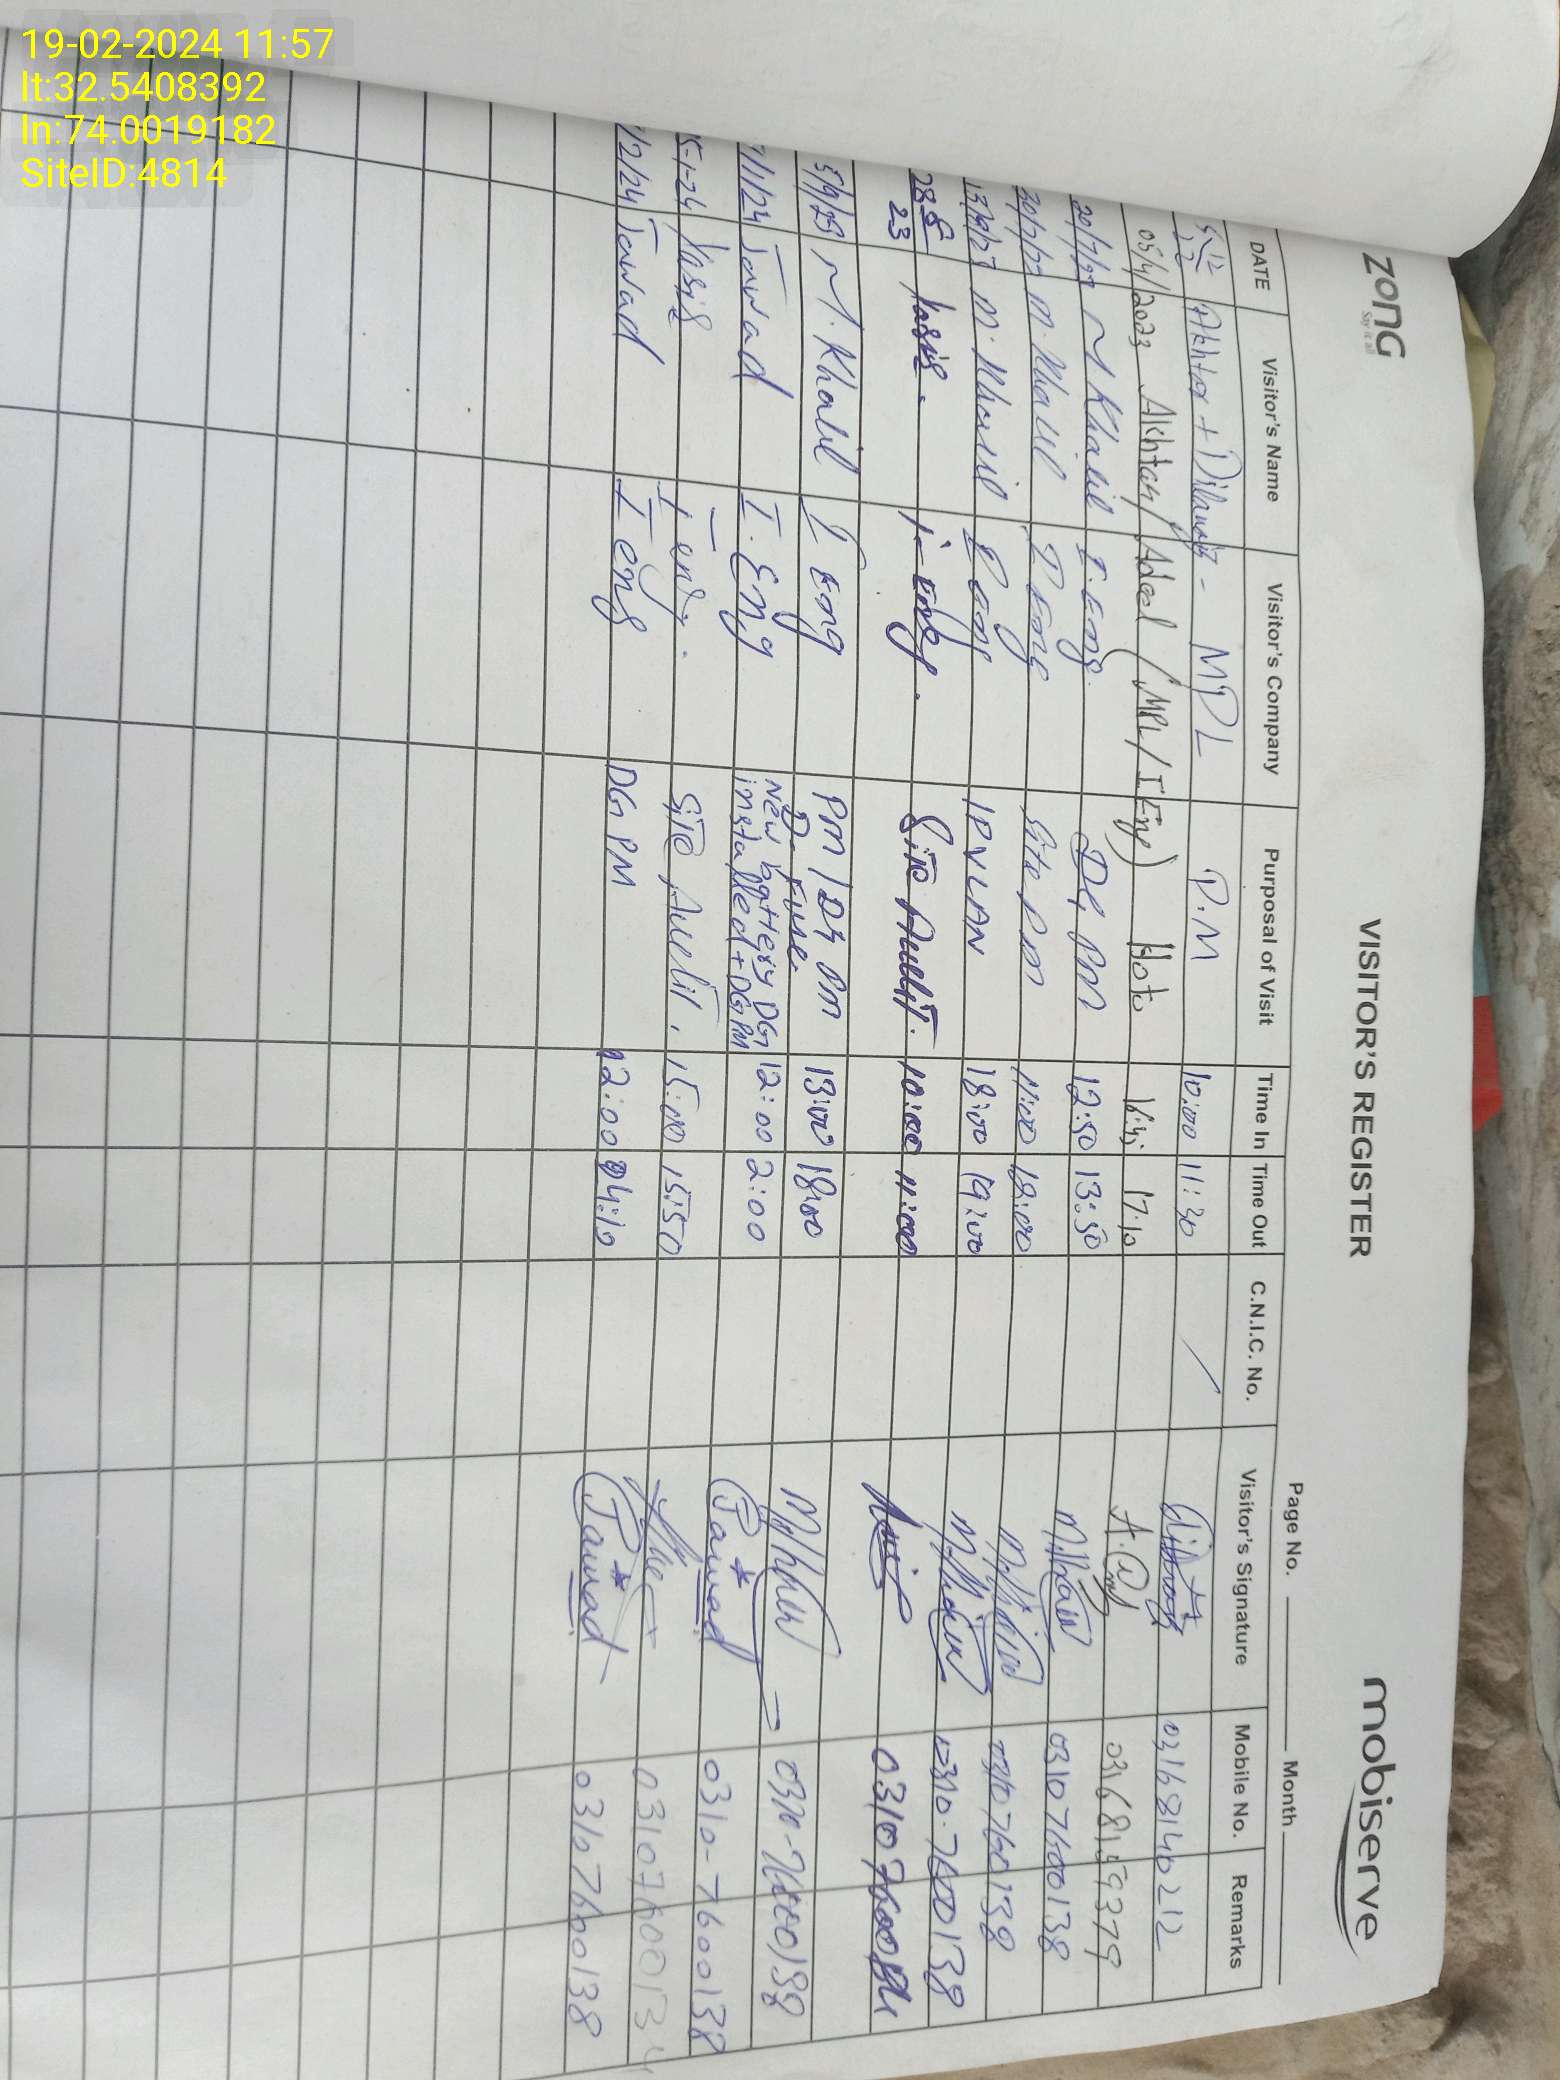 19-02-2024 11:57
lt:32.5408392
ln:74.0019182
SiteID:4814
zong
Say it all
VISITOR'S REGISTER
mobiserve
Page No. Month
DATE Visitor's Name Visitor's Company Purposal of Visit Time In Time Out C.N.I.C. No. Visitor's Signature Mobile No. Remarks
Akhtar + MPL P.M 10:00 11:30 03168140212
05/4/2023 Akhtar/ Adeel (MPL/I Eng) Hoto 17:10 A. 03168159379
M Khalil I.Eng. DG PM 12:50 13:50 03107600138
M. Khalil I Eng Site PM 11:00 03107600138
M. Khalil I Eng IPVLAN 18:00 19:00 0310-7600138
28 8 23 Yasir. I-Eng. Site Audit. 10:00 11:00 0310
M. Khalil I Eng PM / DG PM 13:00 18:00
/1/24 Jawad I.Eng New battery DG installed+DG PM 12:00 2:00 Jawad 0310-7600138
5-1-24 Yasir I eng. Site Audit. 15:00 15:50 0310760013
/2/24 Jawad I eng DG PM 12:00 04:10 Jawad 03107600138